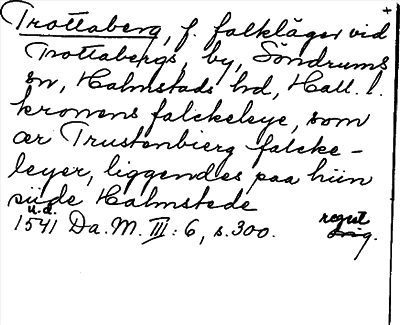 +
Trottaberg, f. falkläger vid
Trottabergs, by, Söndrums
sn, Halmstads hd, Hall. l.
kronens falckeleye, som
ær Trustenbierg falcke-
leyer, liggendes paa hiin
side Halmstede
u.d.
1541 Da. M. III: 6, s. 300. regist
orig.